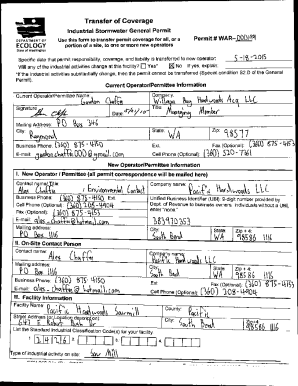 Transfer of Coverage
Industrial Stormwater General Permit
DEPARTMENT OF
ECOLOGY
State of Washington
Use this form to transfer permit coverage for all, or a
portion of a site, to one or more new operators
Permit # WAR-
Specific date that permit responsibility, coverage, and liability is transferred to new operator: 5-18-2015
Will any of the industrial activities change at the facility? Yes* No If yes, explain:
*If the industrial activities substantially change, then the permit cannot be transferred (Special condition S2.D of the General
Permit).
Current Operator/Permittee Information
Current Operator/Permittee Name: Company:
Gordon Chaffee Willapa Bay Hardwoods Acq LLC
Signature Date Title:
Managing Member
Mailing Address: PO Box 346
City: State: Zip:
Raymond WA 98577
Business Phone: (360) 875-4150 Ext. Fax (Optional): (360) 875-4153
E-mail: Cell Phone (Optional):
New Operator/Permittee Information
I. New Operator / Permittee (all permit correspondence will be mailed here)
Contact name/Title Company name:
Alex Chaffe, Environmental Contact Pacific Hardwoods LLC
Business Phone: (360) 875-4150 Ext. Unified Business Identifier (UBI): 9-digit number provided by
Cell Phone (Optional) (360) 208-4904 Dept of Revenue to business owners. If individual without UBI,
Fax (Optional) (360) 875-4153 enter "none."
E-mail:
Mailing address: City: State: Zip + 4:
PO Box 1116 South Bend WA 98586 1116
II. On-Site Contact Person
Contact name: Company name:
Alex Chaffe Pacific Hardwoods LLC
Mailing address: City: State Zip + 4:
PO Box 1116 South Bend WA 98586 1116
Business Phone: (360) 875-4150 Ext. Fax (Optional)
E-mail: Cell Phone (Optional) (360) 208-4904
III. Facility Information
Facility Name County:
Pacific Hardwoods Sawmill Pacific
Street Address (or Location description) City: Zip + 4:
South Bend 98586
List the Standard Industrial Classification Code(s) for your facility:
2 4 2 6
Type of industrial activity on site: Saw Mill